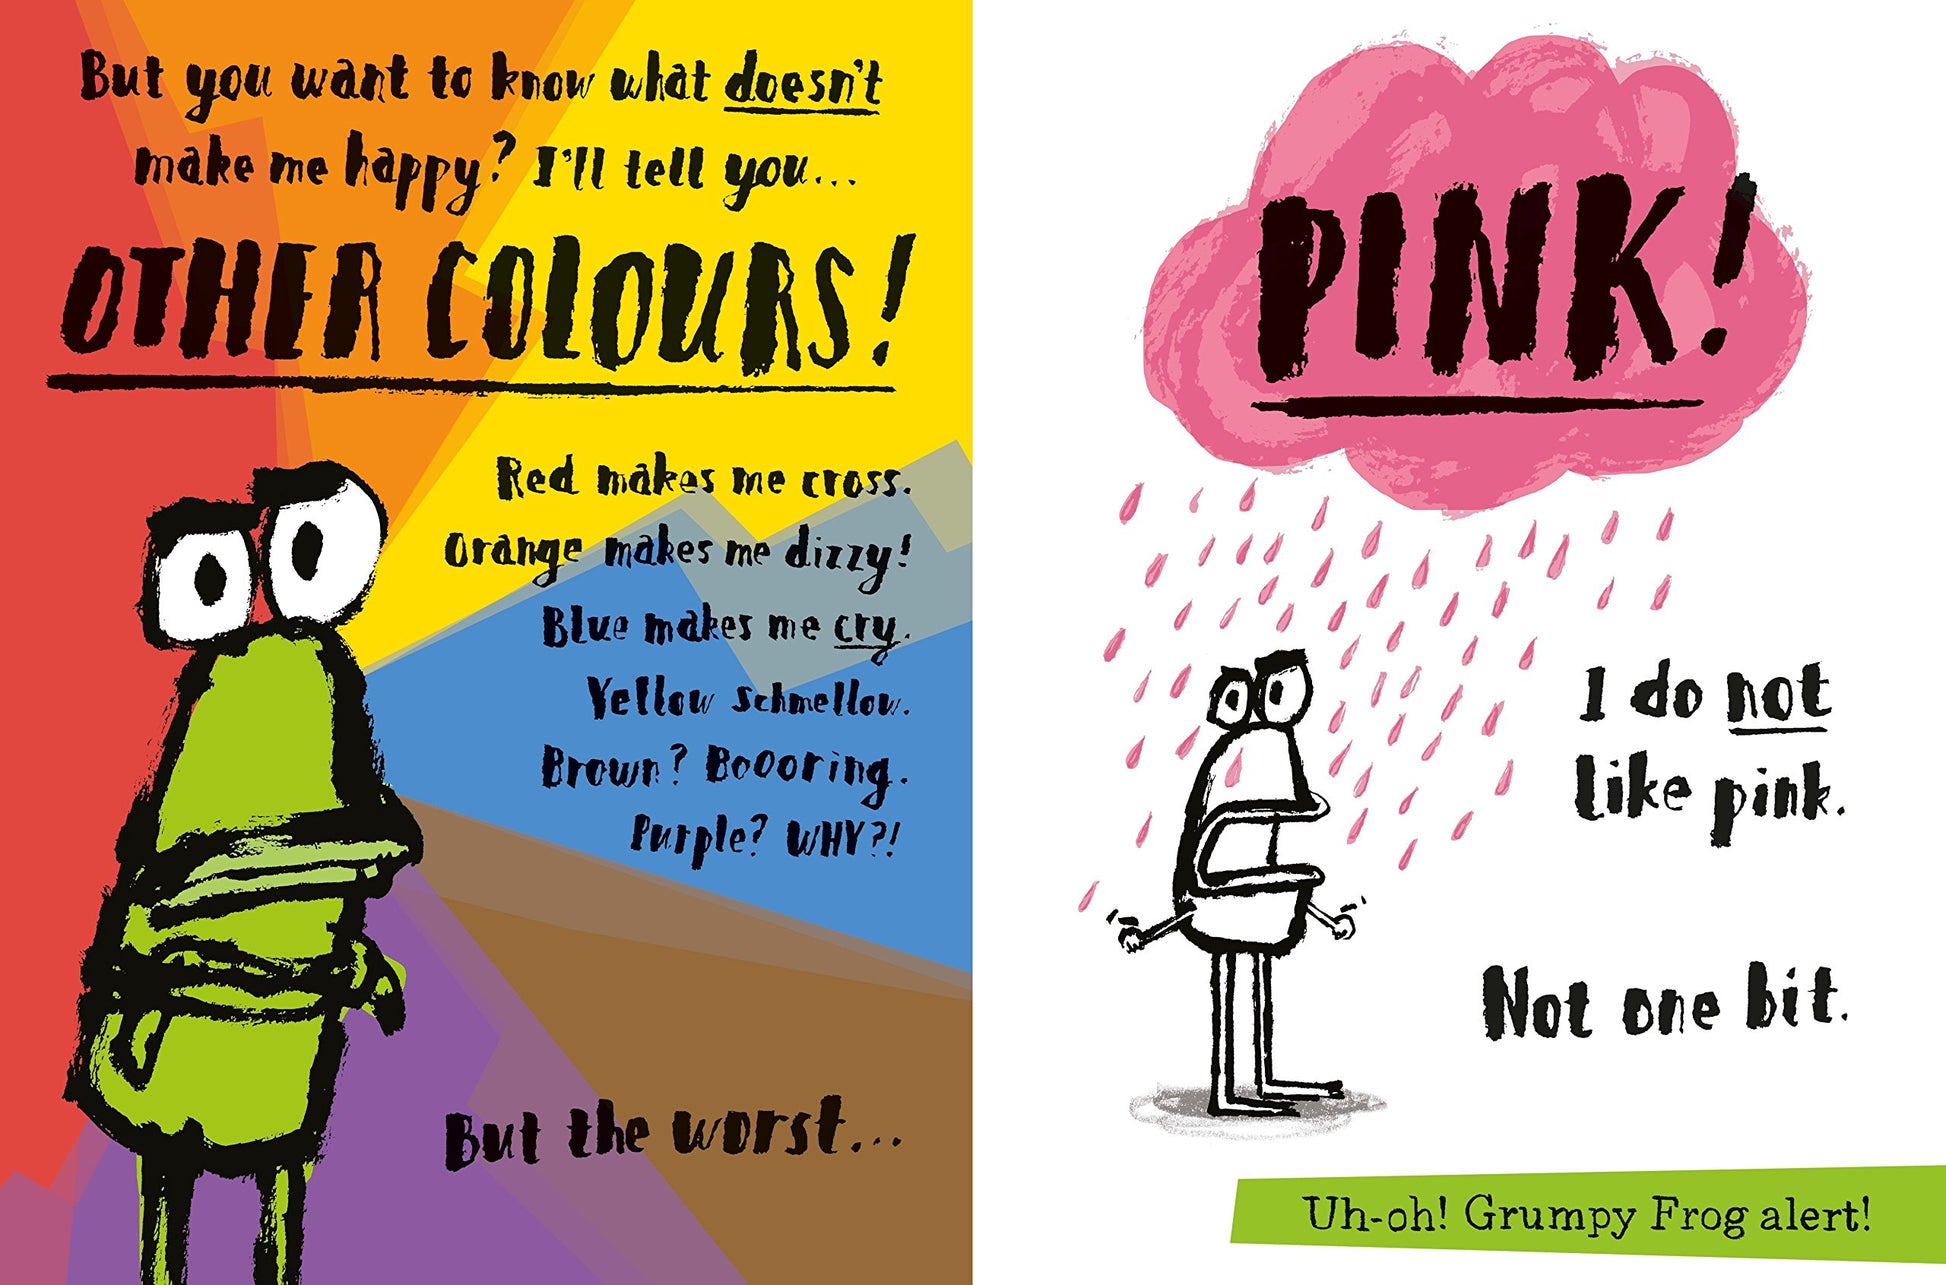 But you want to know what doesn't
make me happy? I'll tell you...
OTHER COLOURS!
Red makes me cross.
Orange makes me dizzy!
Blue makes me cry.
Yellow Schmellow.
Brown? BoOooring.
Purple? WHY?!
But the worst...
PINK!
I do not
like pink.
Not one bit.
Uh-oh! Grumpy Frog alert!